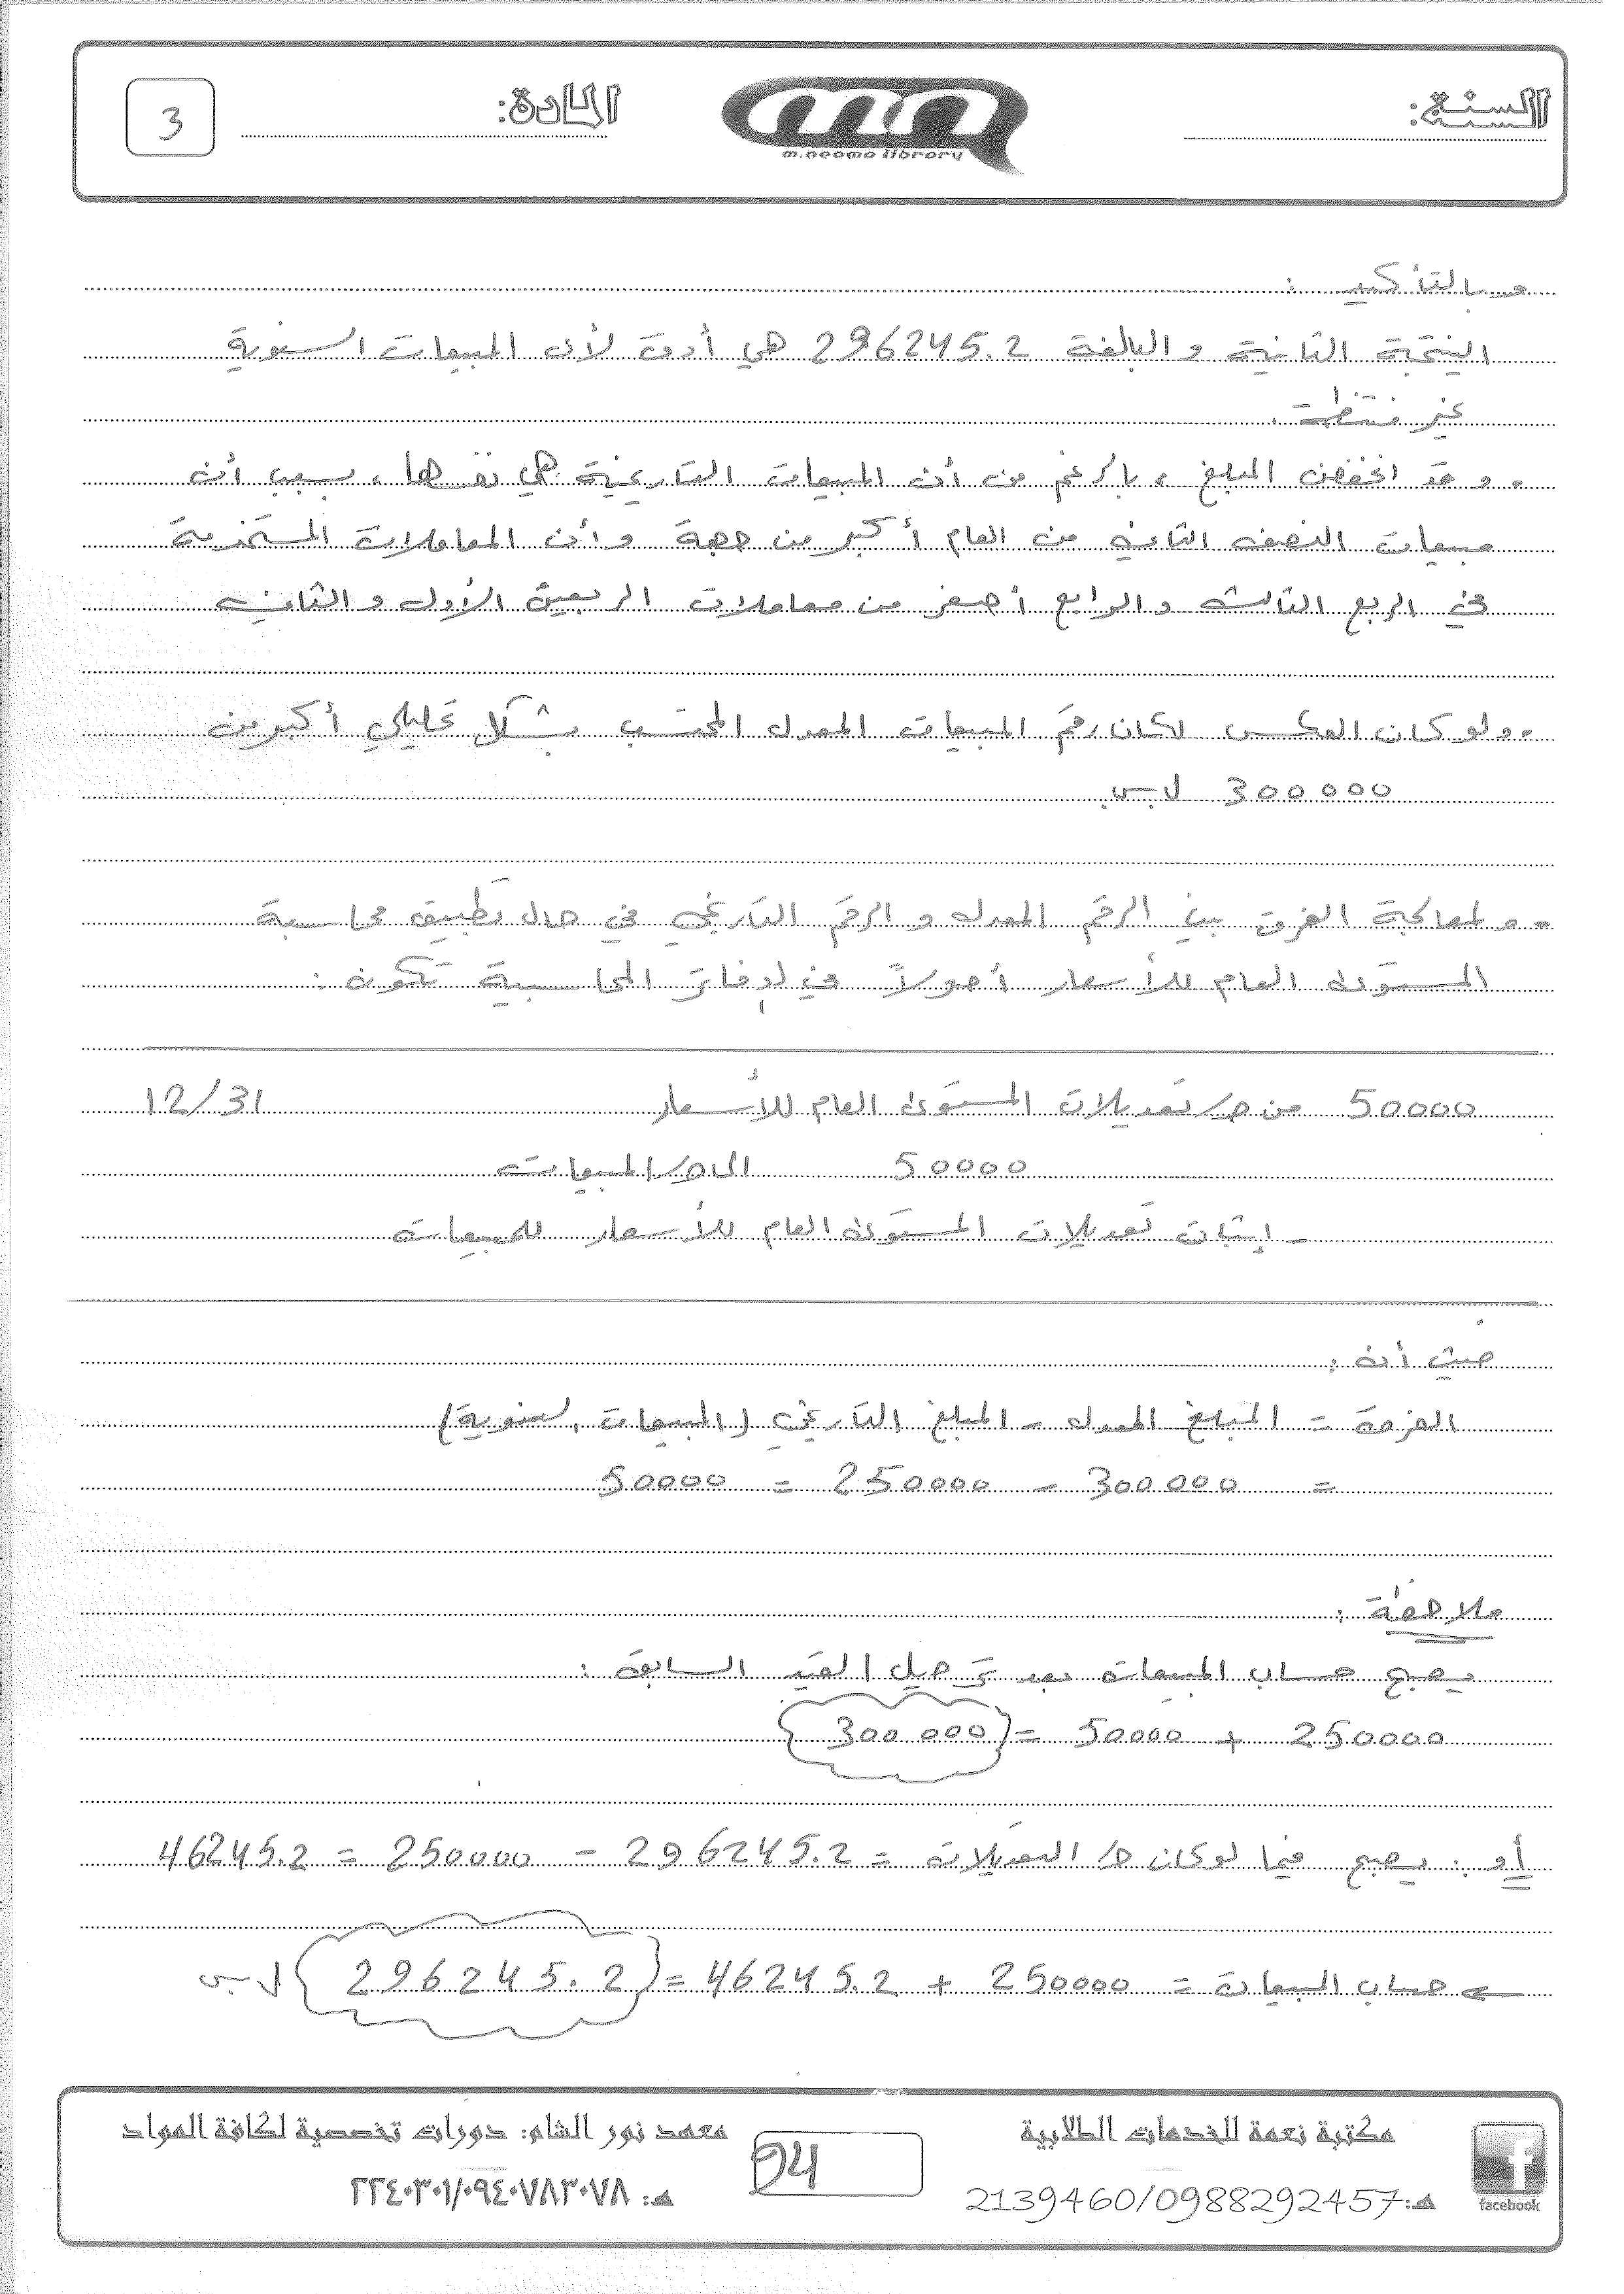 السنة:
m.neoma library
المادة:
3
وبالتأكيد :
النتيجة الثانية والبالغة 296245.2 هي أدق لأن المبيعات السنوية
غير منتظمة .
. وقد انخفض المبلغ ، بالرغم من أن المبيعات التاريخية هي نفسها ، بسبب أن
مبيعات النصف الثاني من العام أكبر من جهة وأن المعاملات المستخدمة
في الربع الثالث والرابع أصغر من معاملات الربعين الأول والثاني
. ولو كان العكس لكان رقم المبيعات المعدل المحتسب بشكل تحليلي أكبر من
300000 ل.س
. ولمعالجة الفرق بين الرقم المعدل والرقم التاريخي في حال تطبيق محاسبة
المستوى العام للأسعار أصولاً في الدفاتر المحاسبية تكون :
50000 من ح/ تعديلات المستوى العام للأسعار 12/31
50000 الى ح/ المبيعات
- إثبات تعديلات المستوى العام للأسعار للمبيعات
حيث أن :
الفرق = المبلغ المعدل - المبلغ التاريخي (المبيعات السنوية)
= 300000 - 250000 = 50000
ملاحظة :
يصبح حساب المبيعات بعد ترحيل القيد السابق :
250000 + 50000 = 300000
أو : يصبح فيما لو كان ح/ التعديلات = 296245.2 - 250000 = 46245.2
⇐ حساب المبيعات = 250000 + 46245.2 = 296245.2 ل.س
facebook
مكتبة نعمة للخدمات الطلابية
هـ: 2139460/0988292457
94
معهد نور الشام: دورات تخصصية لكافة المواد
هـ: ٢٢٤٠٣٠١/٠٩٤٠٧٨٣٠٧٨